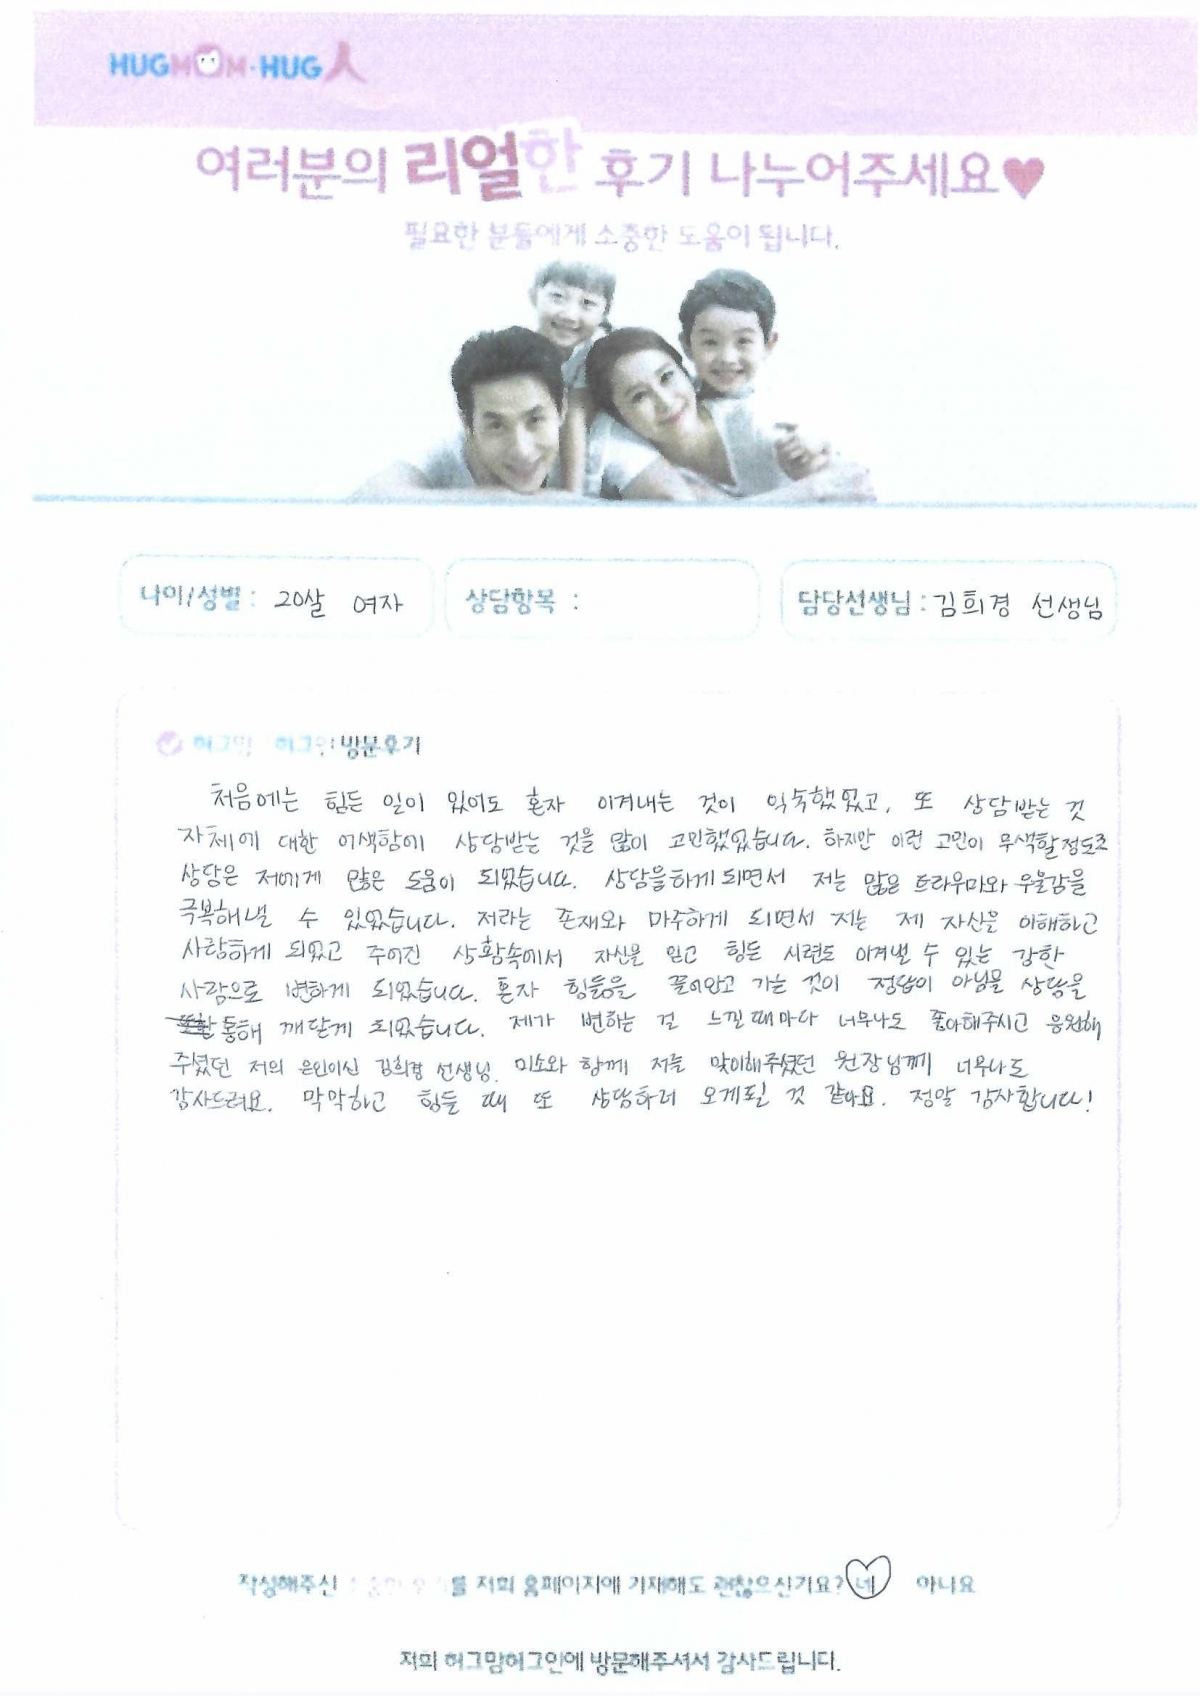 HUGMOM·HUG人
여러분의 리얼한 후기 나누어주세요♥
필요한 분들에게 소중한 도움이 됩니다.
나이/성별 : 20살 여자
상담항목 :
담당선생님 : 김희경 선생님
허그맘 허그인 방문후기
처음에는 힘든 일이 있어도 혼자 이겨내는 것이 익숙했었고, 또 상담받는 것
자체에 대한 어색함에 상담받는 것을 많이 고민했었습니다. 하지만 이런 고민이 무색할정도로
상담은 저에게 많은 도움이 되었습니다. 상담을하게되면서 저는 많은 트라우마와 우울감을
극복해낼 수 있었습니다. 저라는 존재와 마주하게 되면서 저는 제 자신을 이해하고
사랑하게 되었고 주어진 상황속에서 자신을 믿고 힘든 시련도 이겨낼 수 있는 강한
사람으로 변하게 되었습니다. 혼자 힘듦을 끌어안고 가는 것이 정답이 아님을 상담을
통해 깨닫게 되었습니다. 제가 변하는 걸 느낄때마다 너무나도 좋아해주시고 응원해
주셨던 저의 은인이신 김희경 선생님, 미소와 함께 저를 맞이해주셨던 원장님께 너무나도
감사드려요. 막막하고 힘들 때 또 상담하러 오게될 것 같아요. 정말 감사합니다!
작성해주신 를 저희 홈페이지에 기재해도 괜찮으신가요? 네 아니요
저희 허그맘허그인에 방문해주셔서 감사드립니다.